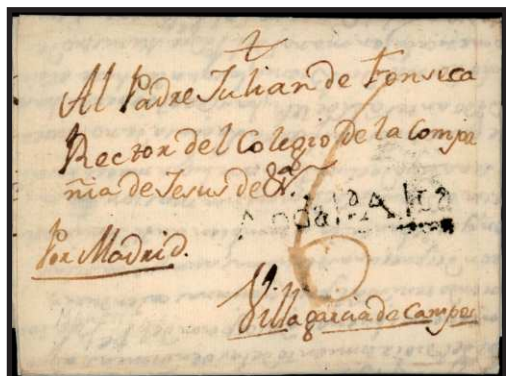 Al Padre Julian de Fonseca
Rector del Colegio de la Compa
ñia de Jesus de &ª
Por Madrid.
6
Villagarcia de Campos